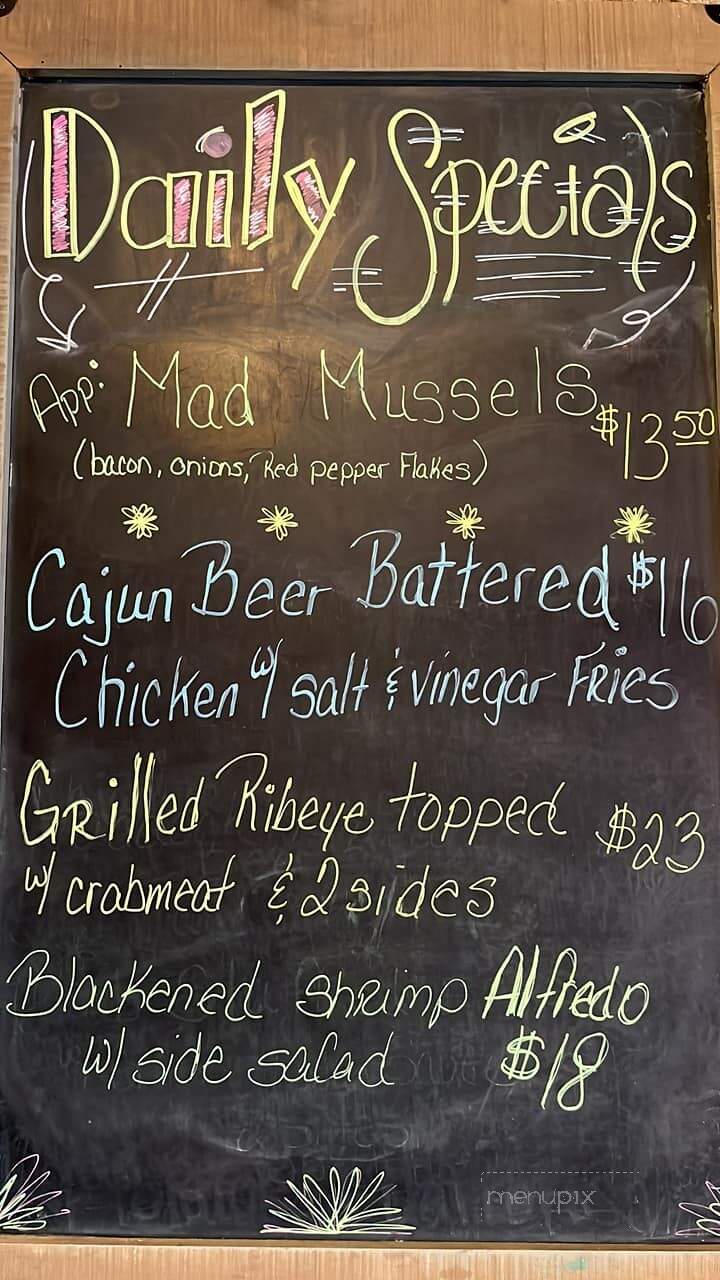 Daily Specials
App: Mad Mussels $13.50
(bacon, onions, Red pepper Flakes)
Cajun Beer Battered $16
Chicken w/ salt & vinegar Fries
Grilled Ribeye topped $23
w/ crabmeat & 2 sides
Blackened shrimp Alfredo
w/ side salad $18
menupix